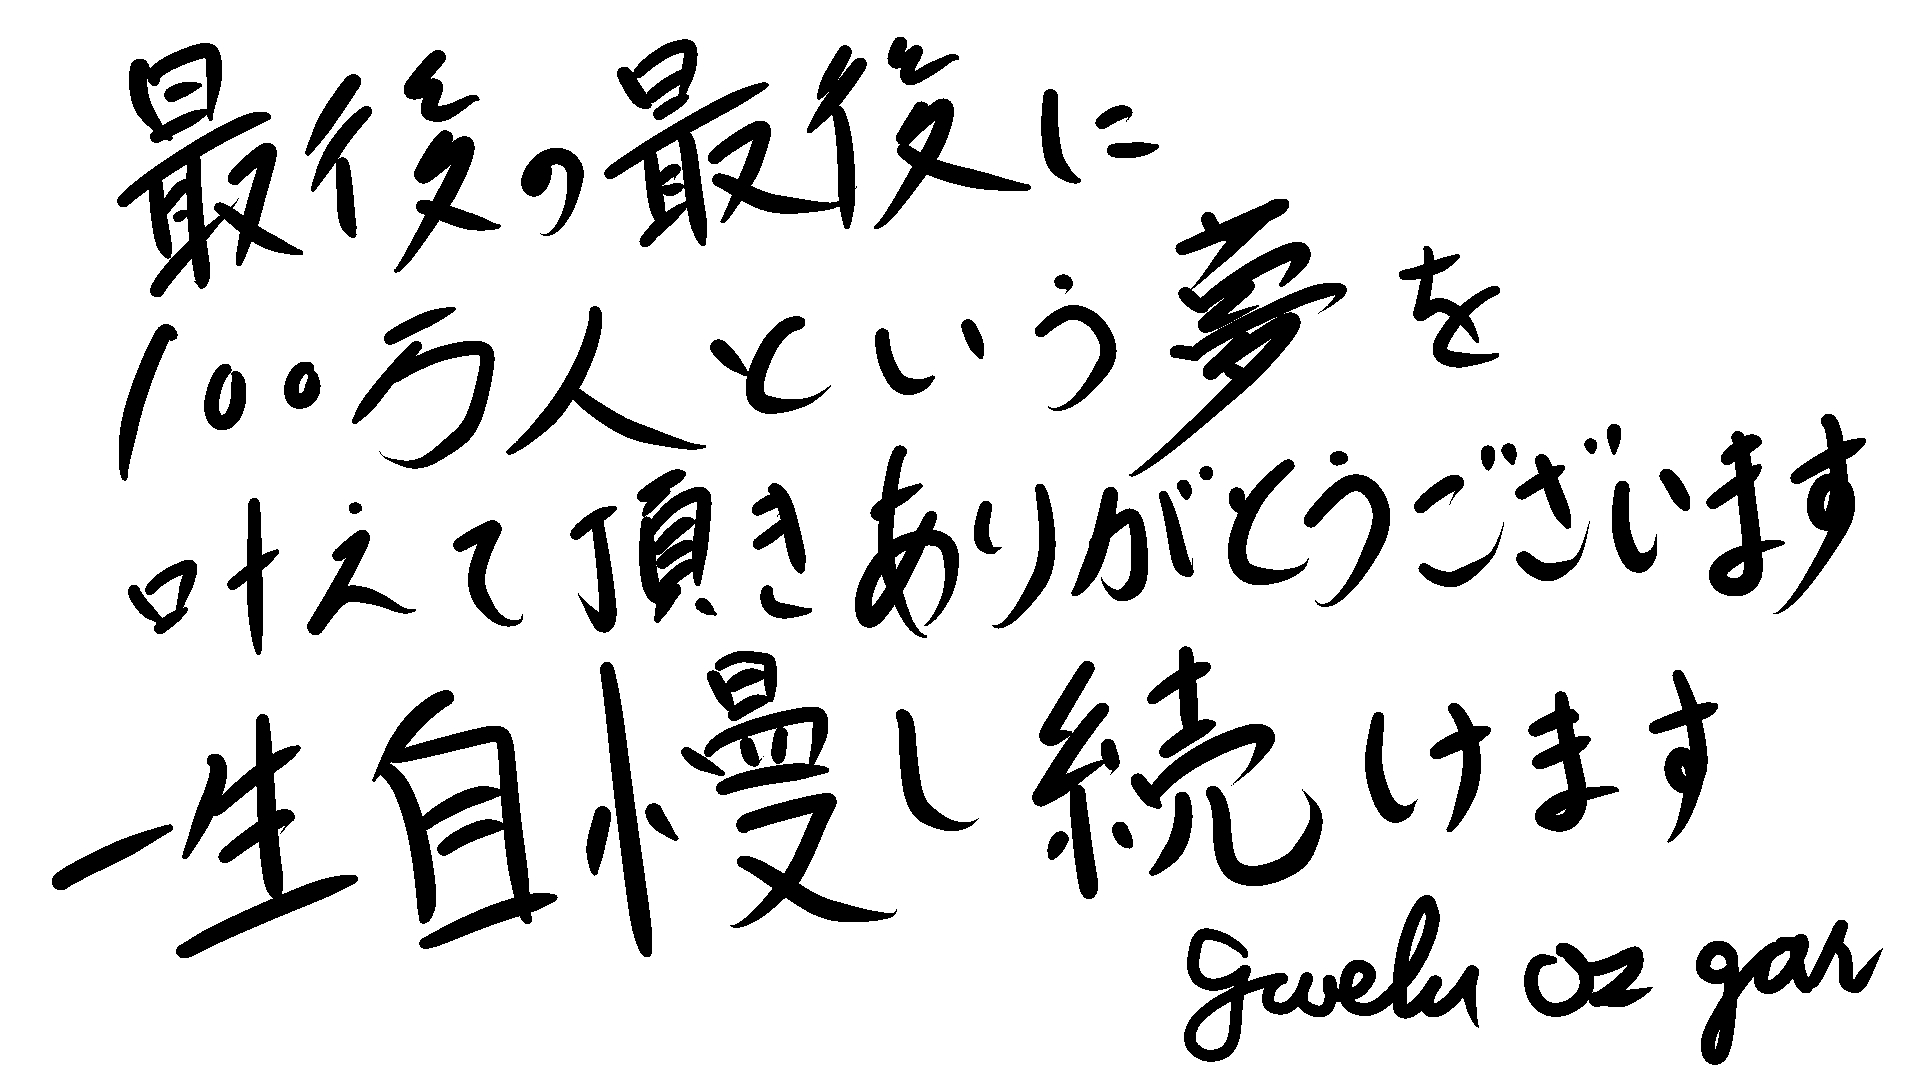 最後の最後に
100万人という夢を
叶えて頂きありがとうございます
一生自慢し続けます
gwelu os gar